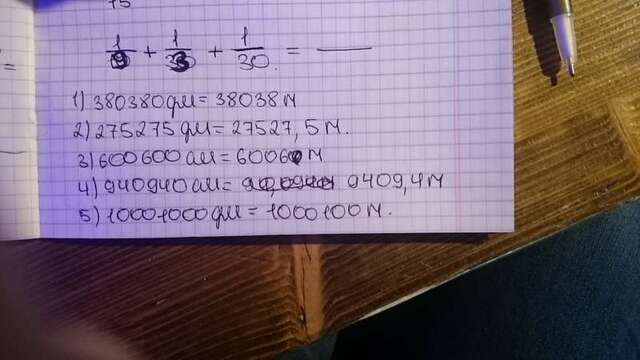 1/3 + 1/3 + 1/30 = ____
1) 380380 дм = 38038 м
2) 275275 дм = 27527,5 м.
3) 600600 см = 6006 м
4) 940940 см = 9409,4 м
5) 10001000 дм = 1000100 м.